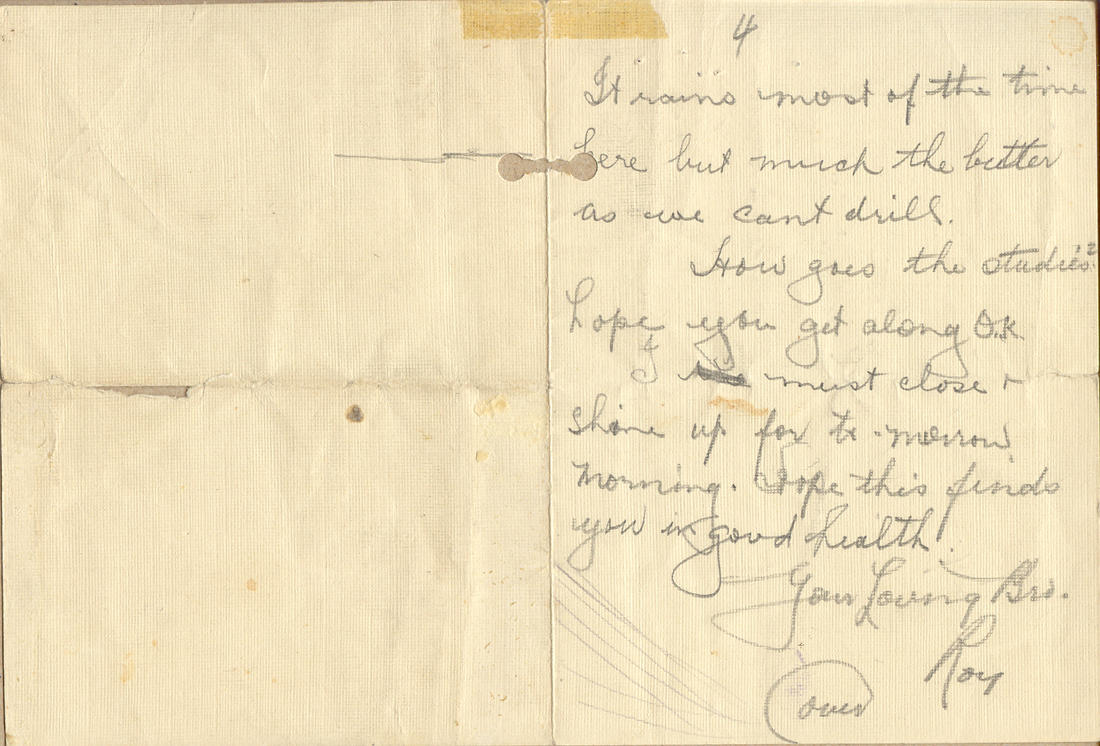 4
It rains most of the time
here but much the better
as we cant drill.
How goes the studies?
hope you get along O.K.
I must close +
shine up for to-morrow
morning. Hope this finds
you in good health.
Your Loving Bro.
Roy
over